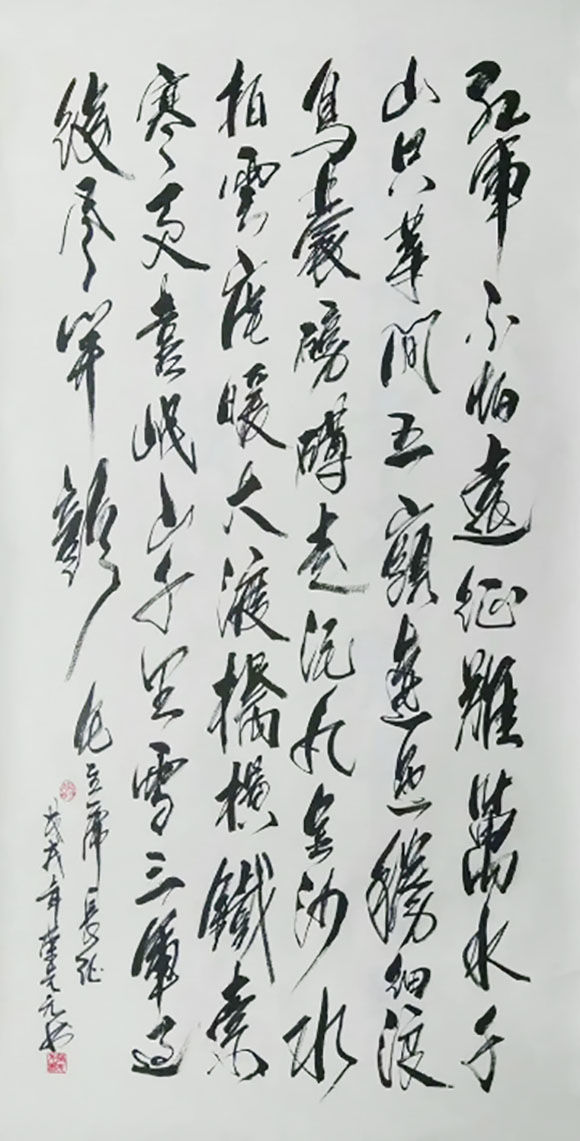 紅軍不怕遠征難萬水千
山只等閒五嶺逶迤騰細浪
烏蒙磅礴走泥丸金沙水
拍雲崖暖大渡橋橫鐵索
寒更喜岷山千里雪三軍過
後尽開顏
毛主席長征
戊戌年元书